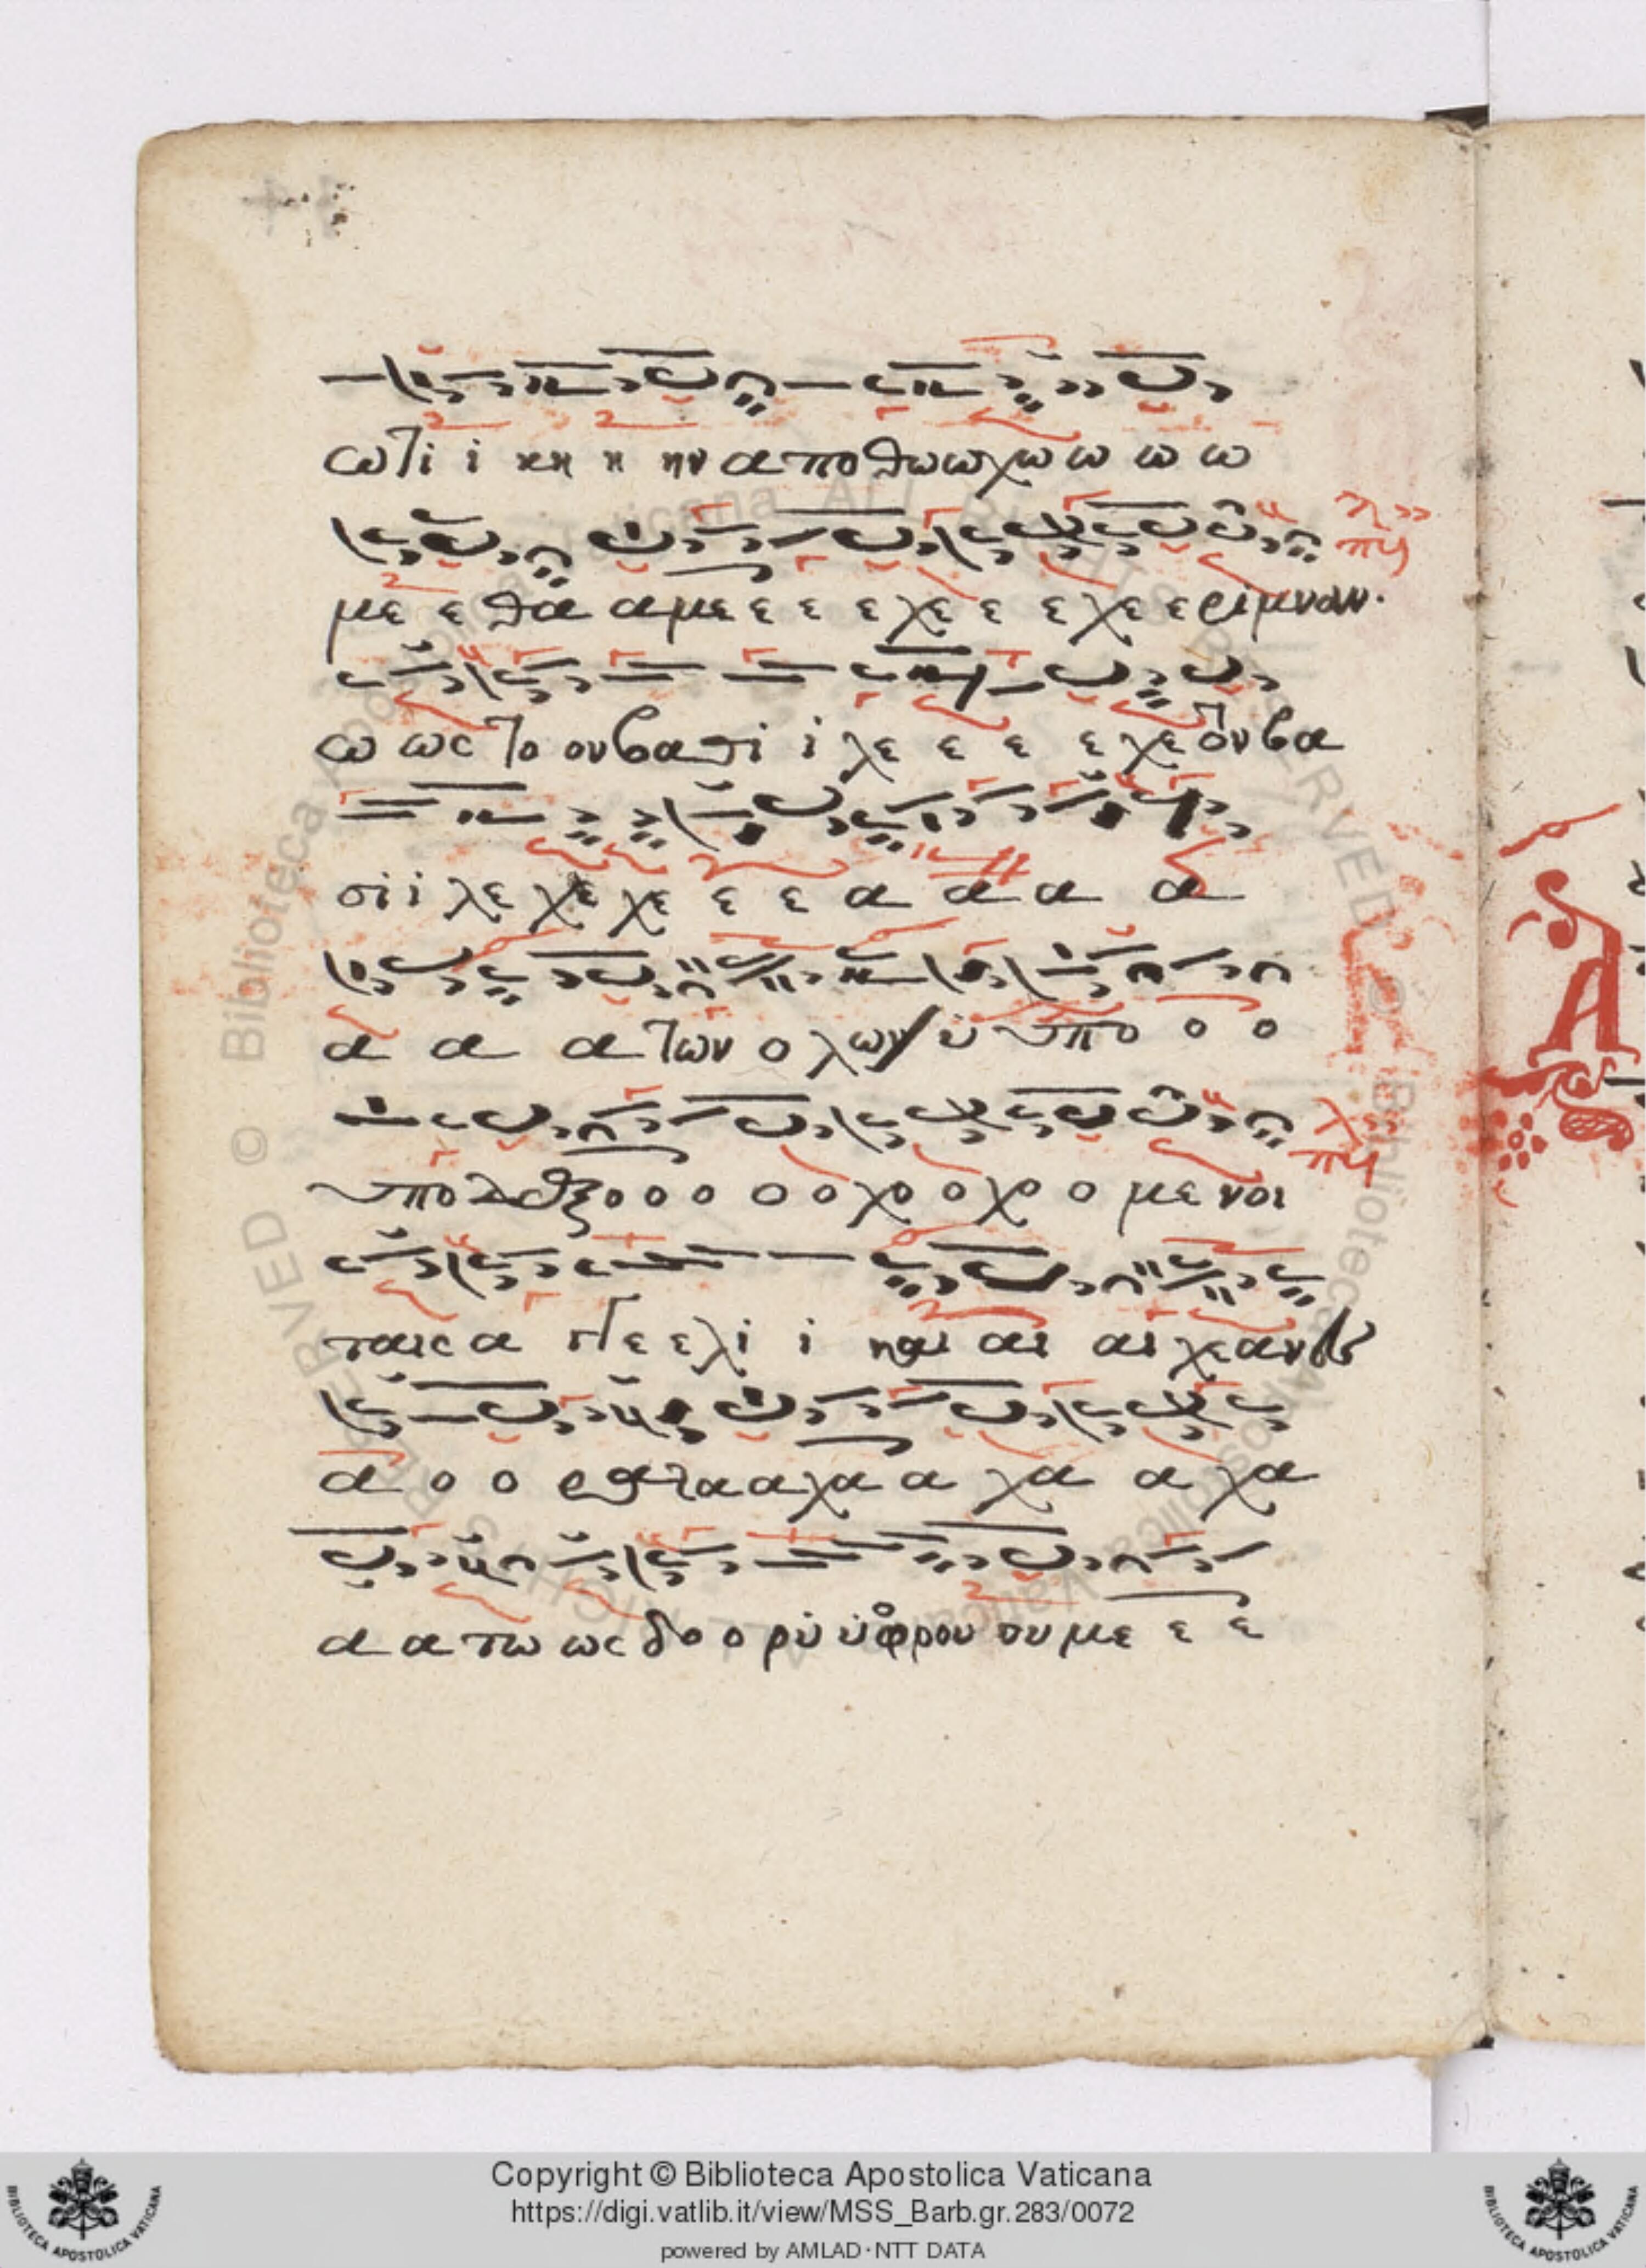 ωτι ι κη η ην αποθωωχω ω ω ω
με ε θα αμε ε ε ε χε ε ε χε ε ριμναν·
ω ως το ουβασι ι λε ε ε ε χε ουβα
σι ι λε χε χε ε ε α α α α
α α α των ο λων υ υπο ο ο
υπο δεξο ο ο ο ο χο ο χο ο με νοι
ταις α γγε ελι ι και αι αι χε
α ο ο ρα τα α χα α χα α χα
α α τω ως δο ο ρυ υφρου ου με ε ε
Copyright © Biblioteca Apostolica Vaticana
https://digi.vatlib.it/view/MSS_Barb.gr.283/0072
powered by AMLAD·NTT DATA